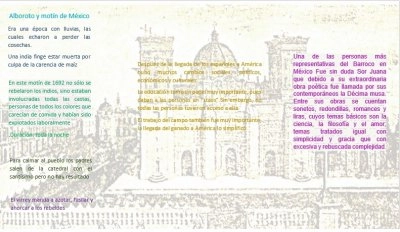 Alboroto y motín de México
Era una época con lluvias, las
cuales echaron a perder las
cosechas.
Una india finge estar muerta por
culpa de la carencia de maíz
En este motín de 1692 no sólo se
rebelaron los indios, sino estaban
involucradas todas las castas,
personas de todos los colores que
carecían de comida y habían sido
explotados laboralmente
Duración: toda la noche
Para calmar al pueblo los padres
salen de la catedral con el
santísimo pero no hay resultado
El virrey manda a azotar, fusilar y
ahorcar a los rebeldes
Después de la llegada de los españoles a América
hubo muchos cambios sociales, políticos,
económicos y culturales
La educación tomó un papel muy importante, pues
daban a las personas un "Sin embargo, no
todas las personas tuvieron acceso a ella
El trabajo del campo también fue muy importante,
la llegada del ganado a América lo simplificó
Una de las personas más
representativas del Barroco en
México Fue sin duda Sor Juana
que debido a su extraordinaria
obra poética fue llamada por sus
contemporáneos la Décima musa.
Entre sus obras se cuentan
sonetos, redondillas, romances y
liras, cuyos temas básicos son la
ciencia, la filosofía y el amor,
temas tratados igual con
simplicidad y gracia que con
excesiva y rebuscada complejidad